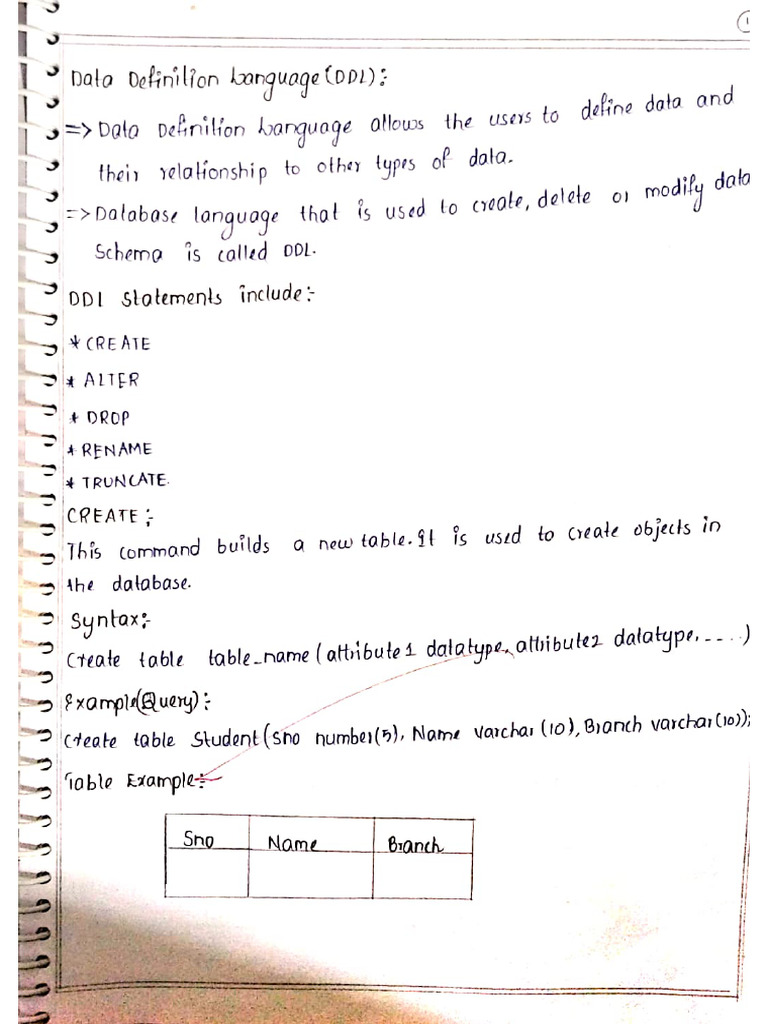 1
Data Definition Language (DDL):
=> Data Definition Language allows the users to define data and
their relationship to other types of data.
=> Database language that is used to create, delete or modify data
Schema is called DDL.
DDL Statements include:-
* CREATE
* ALTER
* DROP
* RENAME
* TRUNCATE.
CREATE:-
This command builds a new table. It is used to create objects in
the database.
Syntax:-
Create table table_name (attribute1 datatype, attribute2 datatype, .....)
Example(Query):-
Create table Student(Sno number(5), Name varchar(10), Branch varchar(10));
Table Example:-
Sno Name Branch